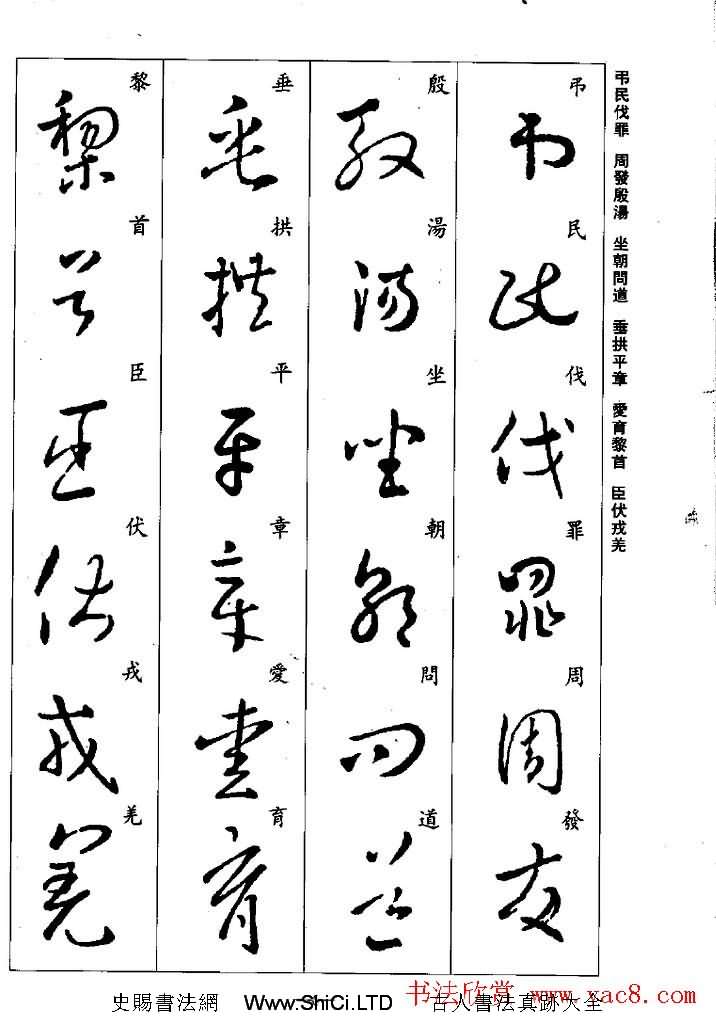 弔民伐罪 周發殷湯 坐朝問道 垂拱平章 愛育黎首 臣伏戎羌
弔民伐罪周發
殷湯坐朝問道
垂拱平章愛育
黎首臣伏戎羌
书法欣赏 www.xac8.com
史賜書法網 Www.ShiCi.LTD 古人書法真跡大全